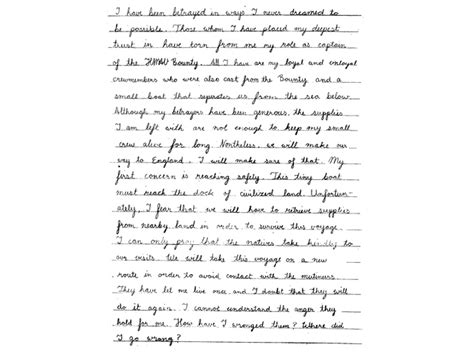 I have been betrayed in ways I never dreamed to
be possible. Those whom I have placed my deepest
trust in have torn from me my role as captain
of the HMAV Bounty. All I have are my loyal and unloyal
crewmembers who were also cast from the Bounty and a
small boat that seperates us from the sea below.
Although my betrayers have been generous, the supplies
I am left with are not enough to keep my small
crew alive for long. Nontheless, we will make our
way to England. I will make sure of that. My
first concern is reaching safety. This tiny boat
must reach the dock of civilized land. Unfortun-
ately, I fear that we will have to retrieve supplies
from nearby land in order to survive this voyage.
I can only pray that the natives take kindly to
our visits. We will take this voyage on a new
route in order to avoid contact with the mutineers.
They have let me live once and I doubt that they will
do it again. I cannot understand the anger they
hold for me. How have I wronged them? Where did
I go wrong?